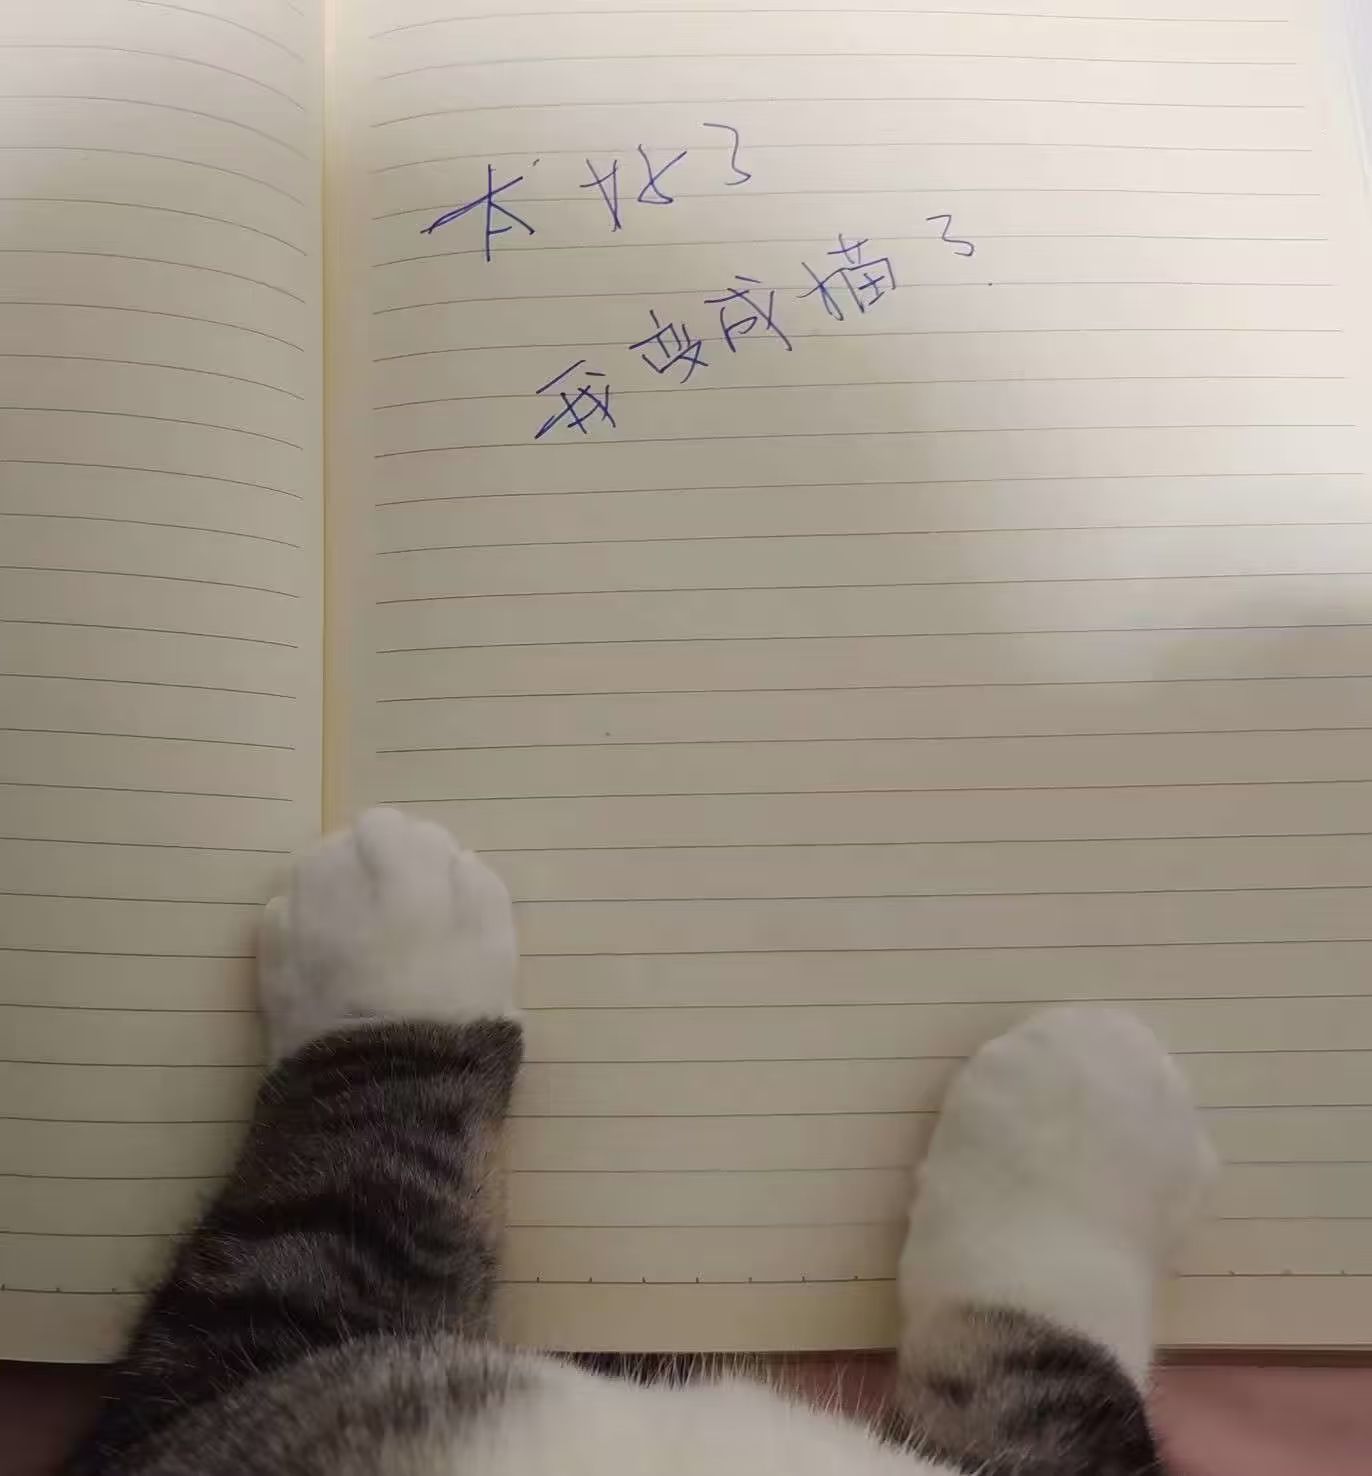 不好了
我变成猫了